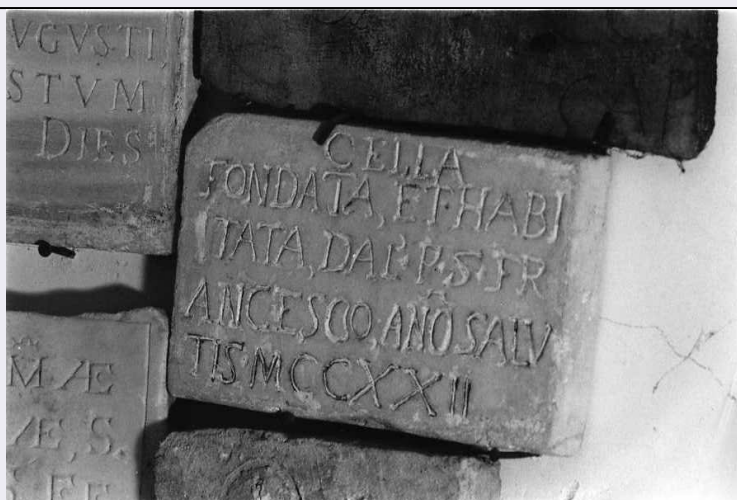 VGVSTI
STVM
DIES
CELLA
FONDATA, ET HABI
TATA, DAL P. S. FR
ANCESCO, AÑO SALV
TIS MCCXXII
M Æ
Æ, S.